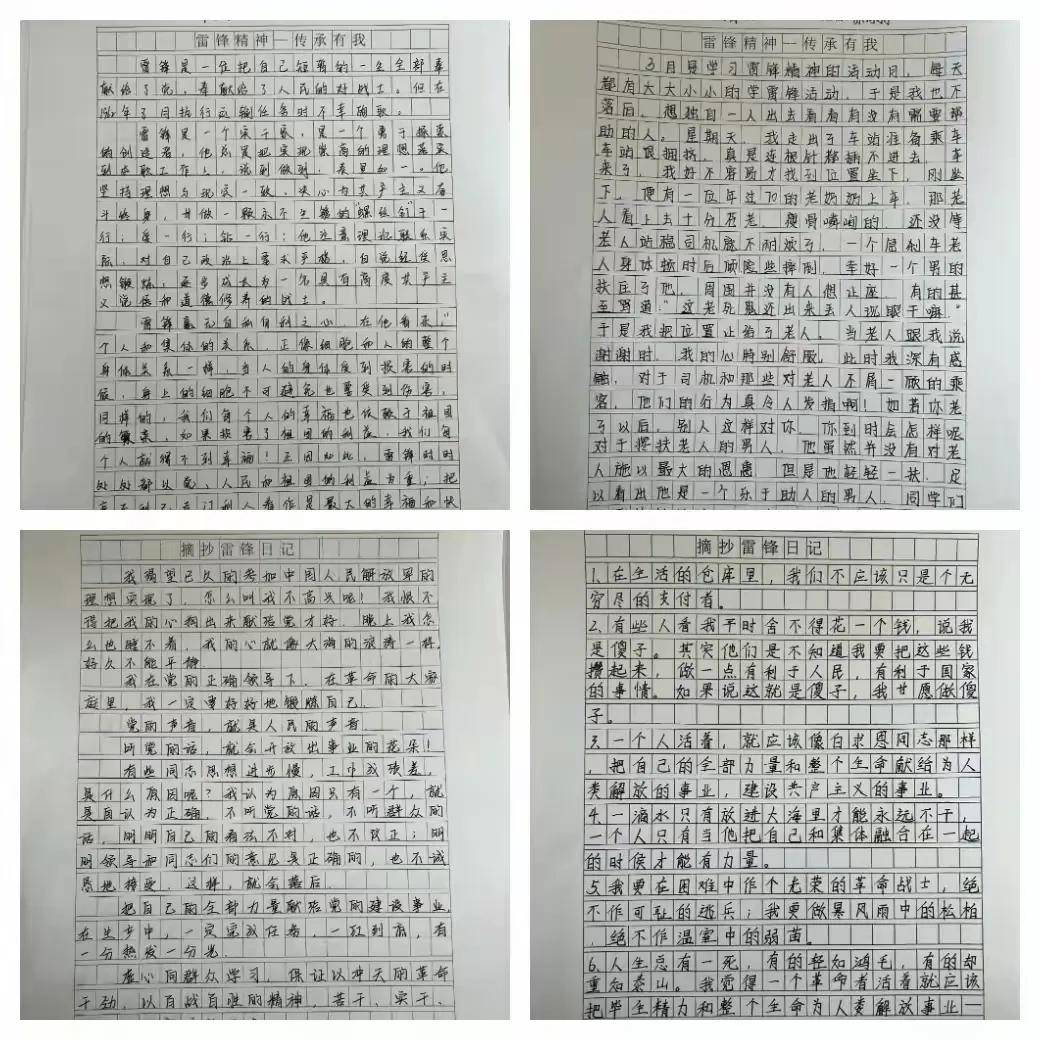 雷锋精神—传承有我
雷锋是一位把自己短暂的一生全部奉
献给了党，奉献给了人民的好战士。但在
年了月执行运输任务时不幸殉职。
雷锋是一个实干家，是一个勇于探索
的创造者，他总是把实现崇高的理想落实
到本职工作上，说到做到，表里如一。他
坚持理想与现实一致，决心为共产主义奋
斗终身，甘做一颗永不生锈的“螺丝钉”干一
行；爱一行；钻一行；他注意理论联系实
际，对自己政治上要求严格，自觉轻
想锻炼，逐步成长为一名具有高度共产主
义觉悟和道德修养的战士。
雷锋毫无自私自利之心，在他看来：“
个人和集体的关系，正像细胞和人的整个
身体关系一样，当人的身体受到损害的时
候，身上的细胞不可避免也要受到伤害，
同样的，我们每个人的幸福也依赖于祖国
的繁荣，如果损害了祖国的利益，我们每
个人就得不到幸福！正因如此，雷锋时时
处处都以党、人民和祖国的利益为重；把
毫不利己专门利人看作是最大的幸福和快
雷锋精神—传承有我
3月是学习雷锋精神的活动月，每天
都有大大小小的学雷锋活动，于是我也不
落后。想独自一人出去看看有没有需要帮
助的人。星期天，我走出了车站准备乘车
车站很拥挤，真是连根针都插不进去，车
来了，我好不容易才找到位置坐下，刚坐
下，便有一位年过70的老奶奶上车，那老
人看上去十分苍老，瘦骨嶙峋的，还没等
老人站稳司机就不耐烦了，一个急刹车老
人身体顿时后倾险些摔倒，幸好一个男的
扶住了他，周围并没有人想让座，有的甚
至骂道：“这老死还出来丢人现眼干嘛”
于是我把位置让给了老人。当老人跟我说
谢谢时，我的心特别舒服，此时我深有感
触，对于司机和那些对老人不屑一顾的乘
客，他们的行为真令人发指啊！如若你老
了以后，别人这样对你，你到时会怎样呢
对于搀扶老人的男人，他虽然并没有对老
人施以最大的恩惠，但是他轻轻一扶，足
以看出他是一个乐于助人的男人，同学们
摘抄雷锋日记
我渴望已久的参加中国人民解放军的
理想实现了，怎么叫我不高兴呢！我恨不
得把我的心掏出来献给党才好。晚上我怎
么也睡不着，我的心就像大海的浪涛一样，
好久不能平静
我在党的正确领导下，在革命的大家
庭里，我一定要好好地锻炼自己
党的声音，就是人民的声音
听党的话，就会开放出事业的花朵！
有些同志思想进步慢，工作成绩差，
是什么原因呢？我认为原因只有一个，就
是自认为正确，不听党的话，不听群众的
话，明明自己的看法不对，也不改正；明
明领导和同志们的意见是正确的，也不诚
恳地接受。这样，就会落后
把自己的全部力量献给党的建设事业，
在生产中，一定完成任务，一红到底，有
一分热发一分光
虚心向群众学习，保证以冲天的革命
干劲，以百战百胜的精神，苦干、实干、
摘抄雷锋日记
1、在生活的仓库里，我们不应该只是个无
穷尽的支付者。
2、有些人看我平时舍不得花一个钱，说我
是傻子。其实他们是不知道我要把这些钱
攒起来，做一点有利于人民，有利于国家
的事情。如果说这就是傻子，我甘愿做傻
子。
3、一个人活着，就应该像白求恩同志那样
，把自己的全部力量和整个生命献给为人
类解放的事业，建设共产主义的事业。
4、一滴水只有放进大海里才能永远不干，
一个人只有当他把自己和集体融合在一起
的时侯才能有力量。
5、我要在困难中作个光荣的革命战士，绝
不作可耻的逃兵；我要做暴风雨中的松柏
，绝不作温室中的弱苗。
6、人生总有一死，有的轻如鸿毛，有的却
重如泰山。我觉得一个革命者活着就应该
把毕生精力和整个生命为人类解放事业一